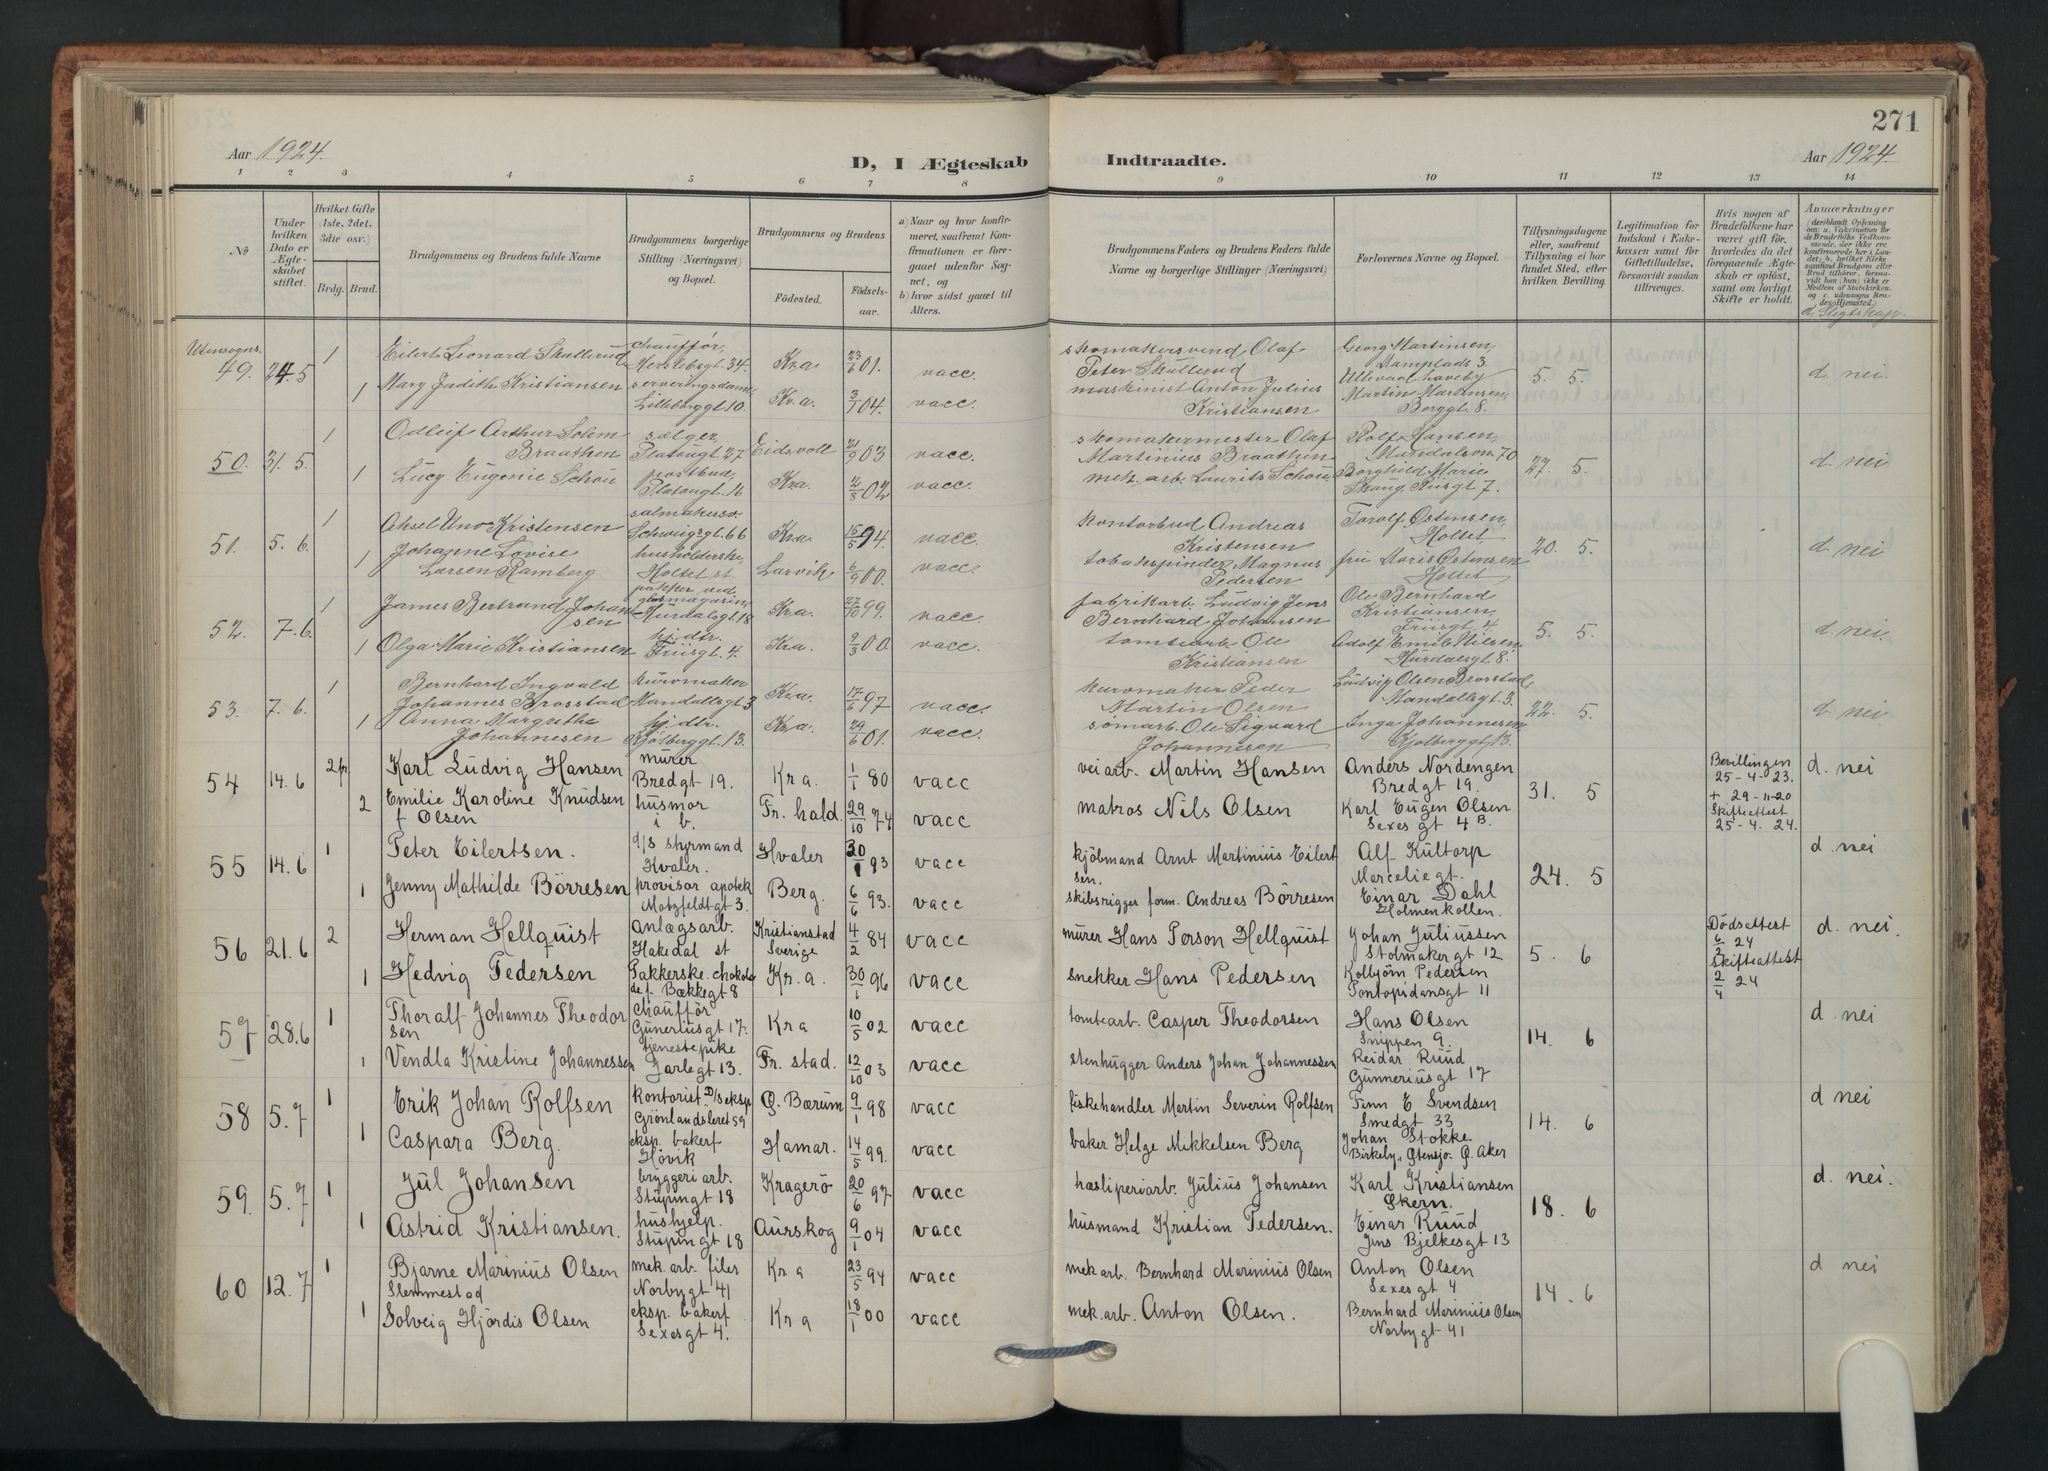 271
Aar 1924.
D, I Ægteskab
Indtraadte.
Aar 1924.
1 2 3 4 5 6 7 8 9 10 11 12 13 14
No
Under hvilken Dato er Ægteskabet stiftet.
Hvilket Gifte (1ste, 2det, 3die osv.)
Brdg. Brud.
Brudgommens og Brudens fulde Navne
Brudgommens borgerlige Stilling (Næringsvei) og Bopæl.
Brudgommens og Brudens
Fødested.
Fødselsaar.
a) Naar og hvor konfirmeret, saafremt Konfirmationen er foregaaet udenfor Sognet, og
b) hvor sidst gaaet til Alters.
Brudgommens Faders og Brudens Faders fulde Navne og borgerlige Stillinger (Næringsvei)
Forlovernes Navne og Bopæl.
Tillysningsdagene eller, saafremt Tillysning ei har fundet Sted, efter hvilken Bevilling.
Legitimation for Indskud i Enkekassen samt for Giftetilladelse, forsaavidt saadan tiltrænges.
Hvis nogen af Brudefolkene har været gift før, hvorledes da det foregaaende Ægteskab er opløst, samt om lovligt Skifte er holdt.
Anmerkninger
d. Slegtskap.
Utensogns.
49. 24.5 1 Eilert Leonard Skullerud chauffør, Herslebsgt. 34. Kra 23/6 01. vacc. skomakersvend Olaf Peter Skullerud Georg Martinsen, Damplads 3 Ullevaal haveby 5. 5. d. nei.
1 Mary Judithe Kristiansen serveringsdame, Lilleborggt. 10. Kr.a. 3/7 04. vacc. maskinist Anton Julius Kristiansen Martin Martinsen, Berggt. 8.
50. 31.5. 1 Odleif Arthur Solem Braathen sælger, Platougt. 27 Eidsvoll 21/9 03 vacc. skomakermester Olaf Martinius Braathen Rolf Hansen, 70 27. 5. d. nei
1 Lucy Eugenie Schou postbud, Platougt. 16 Kra. 2/8 02 vacc. mek. arb. Laurits Schou Borghild Marie Skaug, Riisgt 7.
51. 5.6. 1 Aksel Uno Kristensen salmakersv. Schweigsgt 66 Kr.a. 15/5 94. vacc. kontorbud Andreas Kristensen Torolf Østensen, Holset 20. 5. d. nei
1 Johanne Lovise Larsen Ramberg husholderske, Holset st Larvik 6/9 00. vacc. tobakspinder Magnus Pedersen fru Moris Østensen Holset
52. 7.6. 1 James Bertrand Johansen pakker ved glasmagasin, Hurdalsgt. 18 Kr.a. 27/10 99. vacc. fabrikarb. Ludvig Jens Bernhard Johansen Ole Bernhard Kristiansen, Friisgt. 4. 5. 5. d. nei.
1 Olga Marie Kristiansen hj. dtr. Friisgt. 4. Kra 9/3 00. vacc. tomtearb. Ole Kristiansen Adolf Emil Nilsen, Hurdalsgt 8.
53. 7.6. 1 Bernhard Ingvald Johannes Brosstad kurvmaker Mandallsgt 3 Kr.a. 17/6 97 vacc. kurvmaker Peder Martin Olsen Ludvig Olsen Brosstad, Mandallsgt. 3. 22. 5. d. nei
1 Anna Margrethe Johannesen hj. dtr. Kjølberggt. 13. Kr.a. 29/6 01. vacc. sømarb. Ole Sigvard Johannesen Inga Johannesen, Kjølberggt 13.
54 14.6 2 Karl Ludvig Hansen murer Bredgt 19. Kra. 1/1 80 vacc veiarb. Martin Hansen Anders Nordengen Bredgt 19. 31. 5 Bevillingen 25-4-23. + 29-11-20 Skifteattest 25-4.24. d. nei
2 Emilie Karoline Knudsen f Olsen husmor i b. Fr.hald. 29/10 74 vacc matros Nils Olsen Karl Eugen Olsen Sexesgt 4 B.
55 14.6 1 Peter Eilertsen. styrmand Hvaler. Hvaler 30/1 93 vacc kjøbmand Arnt Martinius Eilertsen. Alf Kultorp Marceliegt. 24. 5 d. nei
1 Jenny Mathilde Børresen provisor apotek Motzfeldtgt 3. Berg. 6/6 93. vacc skibsrigger form. Andreas Børresen Einar Dahl Holmenkollen.
56 21.6 2 Herman Hellquist Anlægsarb. Hakedal st Kristianstad Sverige 4/2 84 vacc murer Hans Person Hellquist Johan Juliussen Stolmakergt 12 5. 6 Dødsattest 6/2 24 Skifteattest 2/4 24 d. nei.
1 Hedvig Pedersen Pakkerske. chokolade f. Bækkegt 8 Kr.a. 30/1 96 vacc snekker Hans Pedersen Kolbjørn Pedersen Pontopidansgt 11
57 28.6 1 Thoralf Johannes Theodorsen chauffør Guneriusgt 17. Kra 10/5 02 vacc tomtearb. Casper Theodorsen Hans Olsen Snippen 9. 14. 6 d. nei
1 Vendla Kristine Johannessen tjenestepike Jarlegt 13. Fr. stad. 12/10 03 vacc stenhugger Anders Johan Johannessen Reidar Ruud Gunneriusgt 17
58 5.7 1 Erik Johan Rolfsen kontorist D/S eksp Grønlandsleret 59 Ø. Bærum 9/1 98 vacc fiskehandler Martin Severin Rolfsen Finn E Svendsen Smedgt 33 14. 6 d nei
1 Caspara Berg. eksp. bakerf Høvik Hamar. 14/5 99. vacc baker Helge Mikkelsen Berg Johan Stokke. Birkely, Østensjø. Ø. Aker
59. 5.7 1 Jul Johansen bryggeriarb. Stupingt 18 Kragerø 20/6 97 vacc høsliperiarb. Julius Johansen Karl Kristiansen Skern. 18. 6 d. nei.
1 Astrid Kristiansen. hushjelp. Stupingt 18 Aurskog 9/1 04 vacc husmand Kristian Pedersen. Einar Ruud Jens Bjelkesgt 13
60 12.7 1 Bjarne Marinius Olsen Slemmestad mek. arb. filer Norbygt 41 Kra 23/5 94 vacc mek arb. Bernhard Marinius Olsen Anton Olsen Sexesgt 4 14. 6 d nei
1 Solveig Hjördis Olsen eksp. bakerf Sexesgt 4. Kra 18/1 00 vacc mek.arb. Anton Olsen. Bernhard Marinius Olsen Norbygt 41